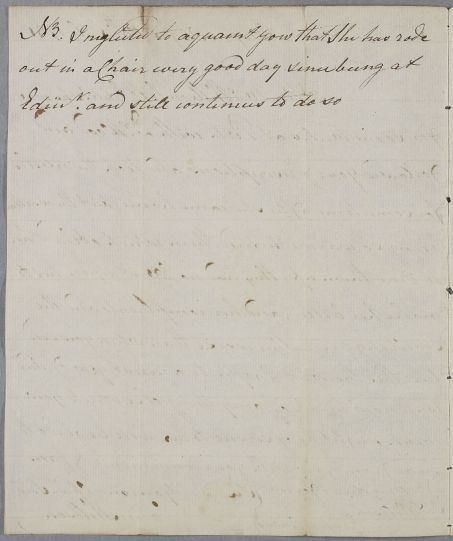 NB. I neglected to aquaint you that She has rode
out in a Chair every good day since being at
Edinr. and still continues to do so